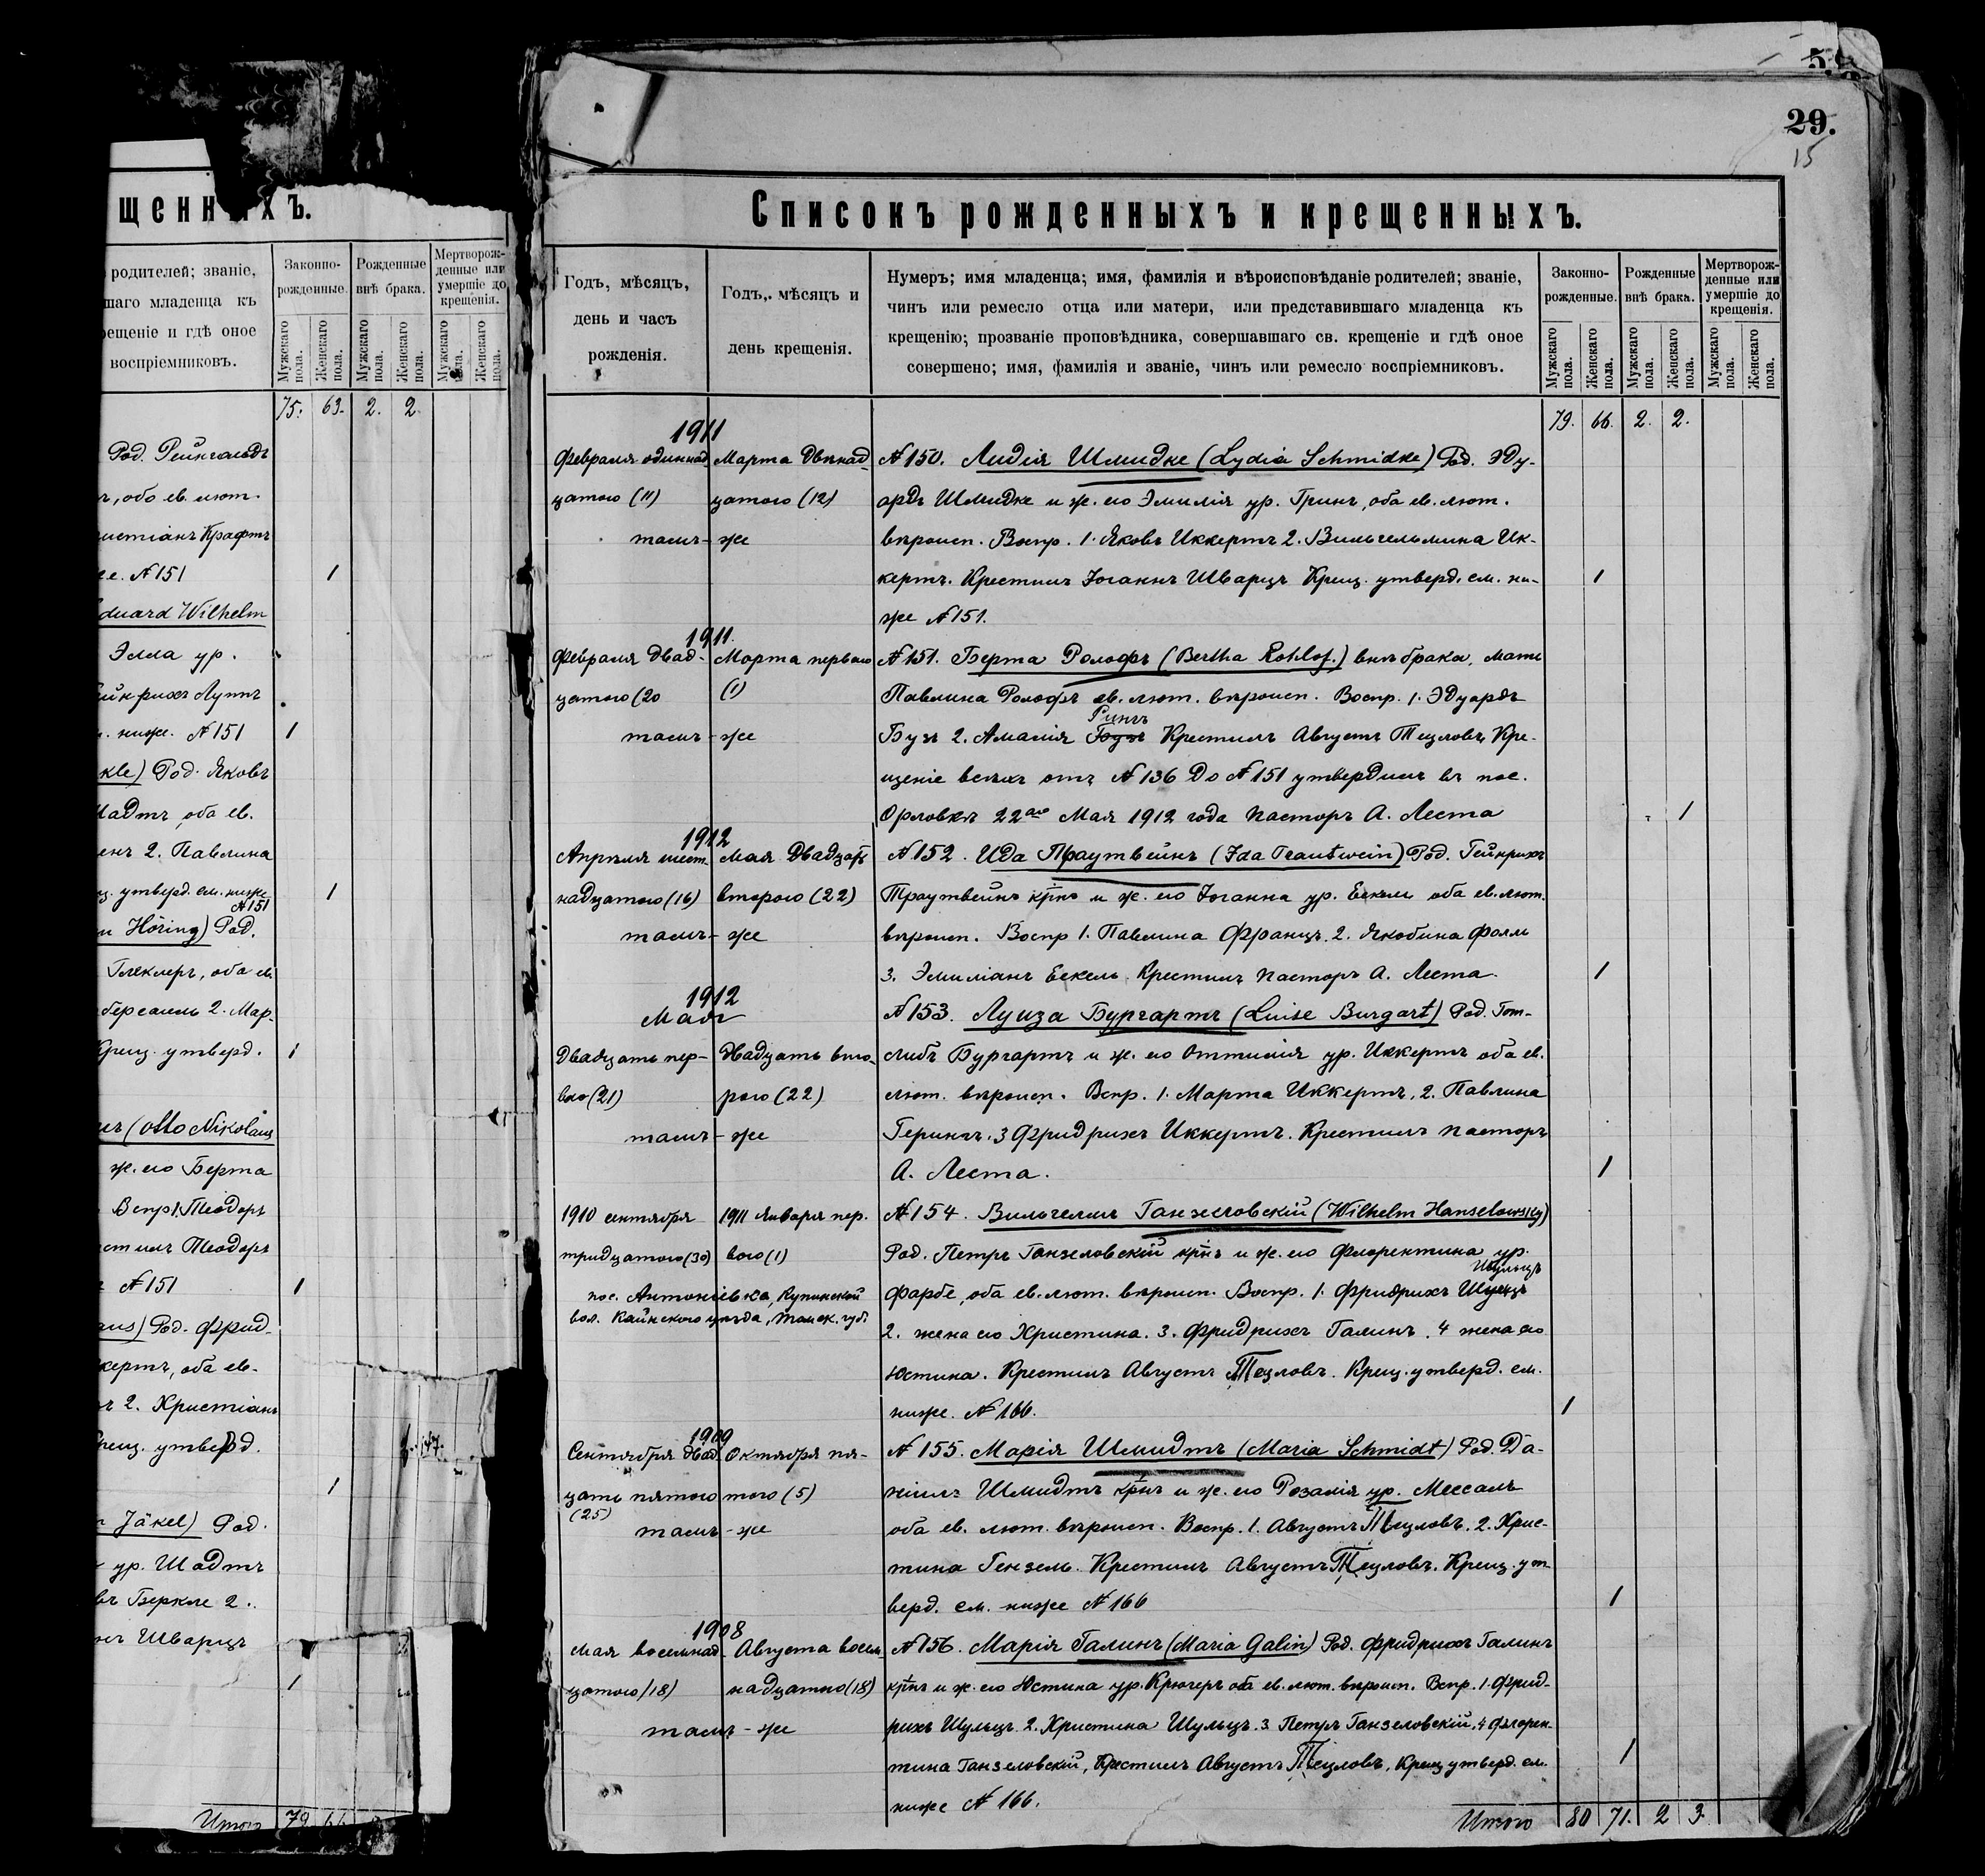 щенныхъ.
родителей; званіе,
шаго младенца къ
рещеніе и гдѣ оное
воспріемниковъ.
Законно-
рожденные.
Рожденные
внѣ брака.
Мертворож-
денные или
умершіе до
крещенія.
Мужскаго пола.
Женскаго пола.
Мужскаго пола.
Женскаго пола.
Мужскаго пола.
Женскаго пола.
75. 63. 2. 2.
Род. Рейнгольдъ
ъ, обо ев. лют.
истіанъ Крафтъ
е. №151 1
Eduard Wilhelm
Элла ур.
ейнрихъ Лутъ
. ниже. №151 1
kle) Род. Яковъ
Шадтъ, оба ев.
енъ 2. Павлина
щ. утверд. см. ниже 1
№151
n Höring) Род.
Глеклеръ, оба ев.
берсаиль 2. Мар-
Крещ. утверд. 1
ръ (Otto Nikolaus
ж. его Берта
Вспр. 1. Теодоръ
стилъ Теодоръ
№151 1
aus) Род. Фрид-
кертъ, оба ев.
ъ 2. Христіанъ
Крещ. утверд.
1
n Jäkel) Род.
ур. Шадтъ
въ Беркле 2.
нъ Шварцъ
1
Итого 79 66
29.
15
Списокъ рожденныхъ и крещенныхъ.
Годъ, мѣсяцъ,
день и часъ
рожденія.
Годъ, мѣсяцъ и
день крещенія.
Нумеръ; имя младенца; имя, фамилія и вѣроисповѣданіе родителей; званіе,
чинъ или ремесло отца или матери, или представившаго младенца къ
крещенію; прозваніе проповѣдника, совершавшаго св. крещеніе и гдѣ оное
совершено; имя, фамилія и званіе, чинъ или ремесло воспріемниковъ.
Законно-
рожденные.
Рожденные
внѣ брака.
Мертворож-
денные или
умершіе до
крещенія.
Мужскаго пола.
Женскаго пола.
Мужскаго пола.
Женскаго пола.
Мужскаго пола.
Женскаго пола.
79. 66. 2. 2.
1911
Февраля одиннад- Марта двѣнад- №150. Лидія Шмидке (Lydia Schmidke) Род. Эду-
цатого (11) цатого (12) ардъ Шмидке и ж. его Эмилія ур. Гринъ, оба ев. лют.
тамъ-же вѣроисп. Воспр. 1. Яковъ Иккертъ 2. Вильгельмина Ик-
кертъ. Крестилъ Іоганнъ Шварцъ Крещ. утверд. см. ни- 1
же №151.
1911.
Февраля двад- Марта перваго №151. Берта Ролофъ (Bertha Rohlof.) внѣ брака, мать
цатого (20 (1) Павлина Ролофъ ев. лют. вѣроисп. Воспр. 1. Эдуардъ
Рингъ
тамъ-же Бузъ 2. Амалія Годзъ Крестилъ Августъ Тецловъ, Кре-
щеніе всѣхъ отъ №136 до №151 утвердилъ въ пос.
Орловкѣ 22го Мая 1912 года пасторъ А. Леста 1
1912
Апрѣля шест- Мая двадцать №152. Ида Траутвейнъ (Ida Trautwein) Род. Гейнрихъ
надцатого (16) второго (22) Траутвейнъ крнъ и ж. его Іоганна ур. Еккель оба ев. лют.
тамъ-же вѣроисп. Воспр 1. Павлина Францъ. 2. Якобина Фалль
3. Эмиліанъ Еккель. Крестилъ пасторъ А. Леста. 1
1912
Мая №153. Луиза Бургартъ (Luise Burgart) Род. Гот-
Двадцать пер- Двадцать вто- либъ Бургартъ и ж. его Оттилія ур. Иккертъ оба ев.
ваго (21) рого (22) лют. вѣроисп. Вспр. 1. Марта Иккертъ, 2. Павлина
тамъ-же Герингъ. 3 Фридрихъ Иккертъ. Крестилъ пасторъ
А. Леста. 1
1910 сентября 1911 Января пер- №154. Вильгельмъ Ганзеловскій (Wilhelm Hanselowsky)
тридцатого (30) вого (1) Род. Петръ Ганзеловскій крнъ и ж. его Флорентина ур.
Шульцъ
пос. Антоніевка, Купинской Фарбе, оба ев. лют. вѣроисп. Воспр. 1. Фридрихъ Шульцъ
вол. Каинского уѣзда, Томск. губ. 2. жена его Христина. 3. Фридрихъ Галинъ. 4 жена его
Юстина. Крестилъ Августъ Тецловъ. Крещ. утверд. см.
ниже. №166. 1
1909
Сентября двад- Октября пя- №155. Марія Шмидтъ (Maria Schmidt) Род. Да-
цать пятого того (5) ніилъ Шмидтъ крнъ и ж. его Розалія ур. Мессаль
(25)
тамъ-же оба ев. лют. вѣроисп. Воспр. 1. Августъ Тецловъ. 2. Хрис-
тина Гензель. Крестилъ Августъ Тецловъ. Крещ. ут-
верд. см. ниже №166 1
1908
Мая восемнад- Августа восем- №156. Марія Галинъ (Maria Galin) Род. Фридрихъ Галинъ
цатого (18) надцатого (18) крнъ и ж. его Юстина ур. Крюгеръ оба ев. лют. вѣроисп. Вспр. 1. Фрид-
тамъ-же рихъ Шульцъ 2. Христина Шульцъ. 3 Петръ Ганзеловскій. 4 Флорен-
тина Ганзеловскій, Крестилъ Августъ Тецловъ, Крещ утверд. см. 1
ниже №166.
Итого 80 71. 2 3.